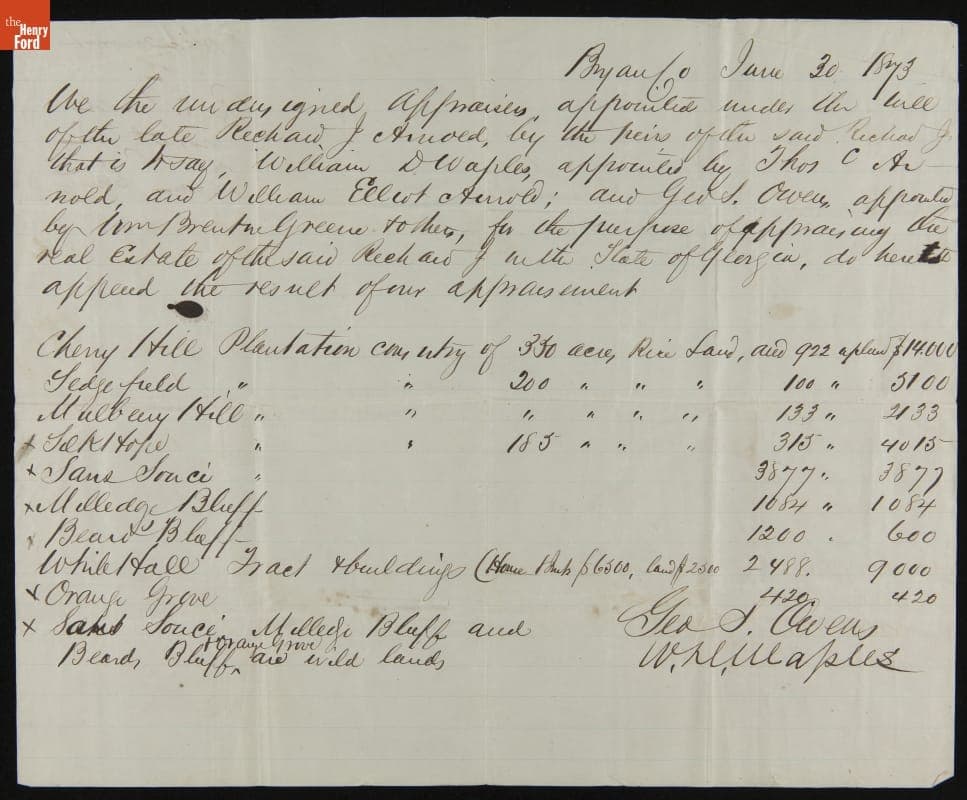 the
Henry
Ford
Bryan Co June 30 1873
We the undersigned Appraisers, appointed under the Will
of the late Richard J Arnold, by the heirs of the said Richard J
that is to say, William D. Waples, appointed by Thos C Ar-
nold, and William Elliot Arnold; and Geo S. Owens, appointed
by Wm Brenton Greene & others, for the purpose of appraising the
real Estate of the said Richard J in the State of Georgia, do hereto
append the result of our appraisement
Cherry Hill Plantation consisting of 330 acres Rice Land, and 922 upland $14.000
Sedgefield " " 200 " " " 100 " 5100
Mulberry Hill " " " " " " 133 " 2133
x Silk Hope " " 185 " " " 315 " 4015
x Sans Souci " 3877 " 3877
x Milledge Bluff 1084 " 1084
x Beards Bluff 1200 . 600
White Hall Tract & buildings (House &c $6500, land $2500 2488. 9000
x Orange Grove 420 420
x Sans Souci, Milledge Bluff and
Geo S. Owens
& Orange Grove
Beards Bluff ^ are wild lands
W. D. Waples